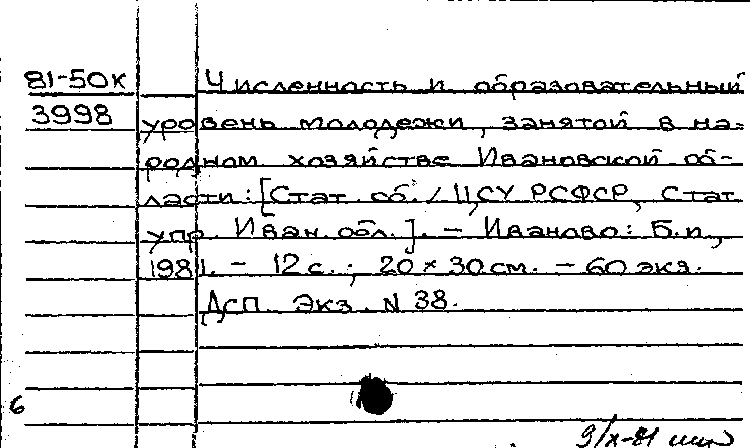 81-50к
3998
Численность и образовательный
уровень молодежи, занятой в на-
родном хозяйстве Ивановской об-
ласти: [Стат. сб. / ЦСУ РСФСР, Стат.
упр. Иван. обл.]. - Иваново: Б.и.,
1981. - 12 с.; 20 × 30 см. - 60 экз.
Дсп. Экз. N 38.
6
9/X-81